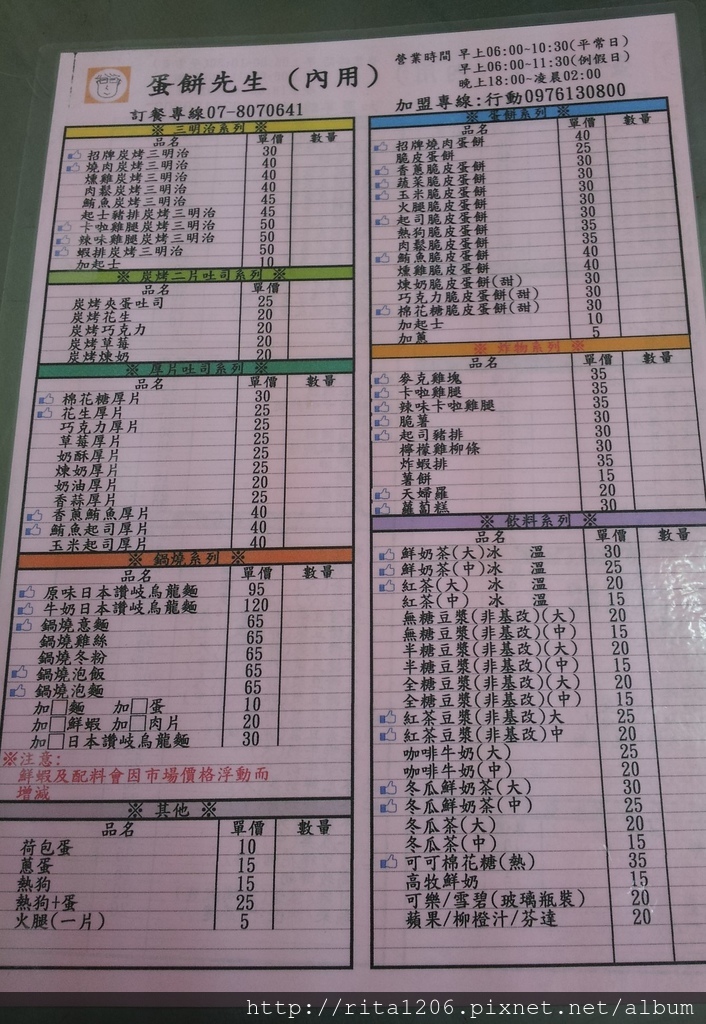 蛋餅先生（內用）
營業時間 早上06:00~10:30(平常日)
早上06:00~11:30(例假日)
晚上18:00~凌晨02:00
訂餐專線07-8070641
加盟專線:行動0976130800
※ 三明治系列 ※
品名 單價 數量
招牌炭烤三明治 30
燒肉炭烤三明治 40
燻雞炭烤三明治 40
肉鬆炭烤三明治 40
鮪魚炭烤三明治 45
起士豬排炭烤三明治 45
卡啦雞腿炭烤三明治 50
辣味雞腿炭烤三明治 50
蝦排炭烤三明治 50
加起士 10
※ 炭烤二片吐司系列 ※
品名 單價 數量
炭烤夾蛋吐司 25
炭烤花生 20
炭烤巧克力 20
炭烤草莓 20
炭烤煉奶 20
※ 厚片吐司系列 ※
品名 單價 數量
棉花糖厚片 30
花生厚片 25
巧克力厚片 25
草莓厚片 25
奶酥厚片 25
煉奶厚片 25
奶油厚片 20
香蒜厚片 25
香蔥鮪魚厚片 40
鮪魚起司厚片 40
玉米起司厚片 40
※ 鍋燒系列 ※
品名 單價 數量
原味日本讚岐烏龍麵 95
牛奶日本讚岐烏龍麵 120
鍋燒意麵 65
鍋燒雞絲 65
鍋燒冬粉 65
鍋燒泡飯 65
鍋燒泡麵 65
加□麵 加□蛋 10
加□鮮蝦 加□肉片 20
加□日本讚岐烏龍麵 30
※注意:
鮮蝦及配料會因市場價格浮動而
增減
※ 其他 ※
品名 單價 數量
荷包蛋 10
蔥蛋 15
熱狗 15
熱狗+蛋 25
火腿(一片) 5
※ 蛋餅系列 ※
品名 單價 數量
招牌燒肉蛋餅 40
脆皮蛋餅 25
香蔥脆皮蛋餅 30
蔬菜脆皮蛋餅 30
玉米脆皮蛋餅 30
火腿脆皮蛋餅 30
起司脆皮蛋餅 30
熱狗脆皮蛋餅 35
肉鬆脆皮蛋餅 35
鮪魚脆皮蛋餅 40
燻雞脆皮蛋餅 40
煉奶脆皮蛋餅(甜) 30
巧克力脆皮蛋餅(甜) 30
棉花糖脆皮蛋餅(甜) 30
加起士 10
加蔥 5
※ 炸物系列 ※
品名 單價 數量
麥克雞塊 35
卡啦雞腿 35
辣味卡啦雞腿 35
脆薯 30
起司豬排 30
檸檬雞柳條 30
炸蝦排 35
薯餅 15
天婦羅 20
蘿蔔糕 30
※ 飲料系列 ※
品名 單價 數量
鮮奶茶(大)冰 溫 30
鮮奶茶(中)冰 溫 25
紅茶(大) 冰 溫 20
紅茶(中) 冰 溫 15
無糖豆漿(非基改)(大) 20
無糖豆漿(非基改)(中) 15
半糖豆漿(非基改)(大) 20
半糖豆漿(非基改)(中) 15
全糖豆漿(非基改)(大) 20
全糖豆漿(非基改)(中) 15
紅茶豆漿(非基改)大 25
紅茶豆漿(非基改)中 20
咖啡牛奶(大) 25
咖啡牛奶(中) 20
冬瓜鮮奶茶(大) 30
冬瓜鮮奶茶(中) 25
冬瓜茶(大) 20
冬瓜茶(中) 15
可可棉花糖(熱) 35
高牧鮮奶 15
可樂/雪碧(玻璃瓶裝) 20
蘋果/柳橙汁/芬達 20
http://rita1206.pixnet.net/album